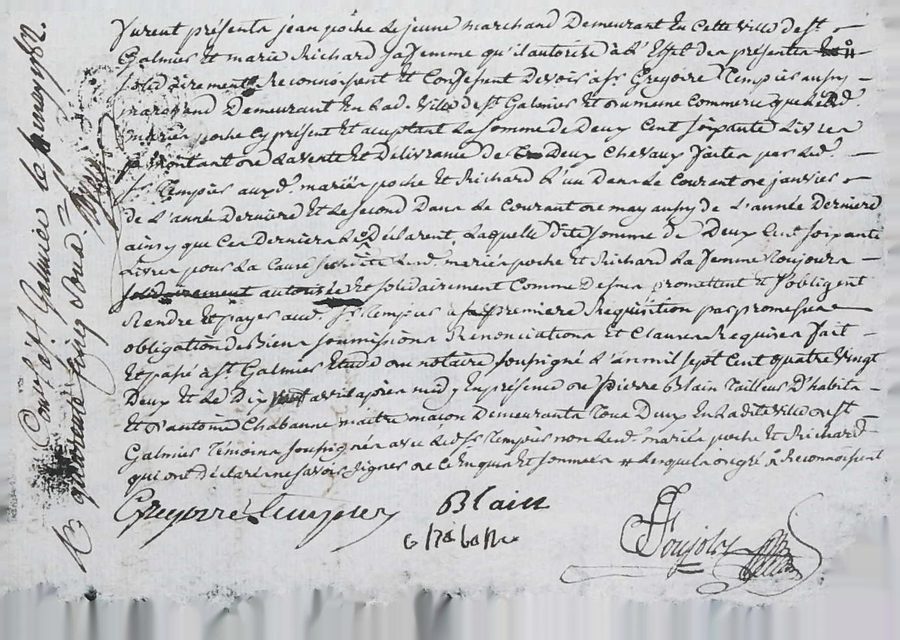 furent présents jean poche Le jeune marchand Demeurant En cette ville de st
Galmier Et marie Richard sa femme qu'il autorise à L'Effet des présentes
solidairement Reconnoissent et Confessent Devoir a sr Gregoire Tempier aussy
marchand Demeurant En lad. ville de st Galmier
mariés poche cy présent Et acceptant La somme de Deux Cent soixante Livres
montant de La vente Et Délivrance de Deux Chevaux faites par led.
sr Tempier auxd. mariés poche Et Richard L'un Dans Le Courant de janvier
de L'année Derniere Et Le second Dans Le Courant de may aussy de L'année Derniere
ainsy que Ces Derniers Le Déclarent, Laquelle ditte somme de Deux Cent soixante
Livres pour La Cause susditte Lesd. mariés poche et Richard La femme toujours
solidairement autorisée Et solidairement Comme Dessus promettent Et s'obligent
Rendre Et payer aud. sr Tempier à sa premiere Requisition par promesse
obligation de Biens soumissions Renonciations Et Clauses Requises fait
Et passé a st Galmier Etude du notaire soussigné L'an mil sept Cent quatre vingt
Deux Et Le Dix avril après midy En présence de pierre Blain Tailleur D'habits
Et d'antoine Chabanne maitre maçon Demeurants Tous Deux En Ladite ville de st
Galmier Témoins soussignés avec Led. sr Tempier non Lesd. mariés poche Et Richard
qui ont Déclaré ne savoir signer de Ce Enquis Et sommés Reconnoissent
Gregoire Tempier Blain
Chabanne
Poujols
Con. a st Galmier le
R. quarante